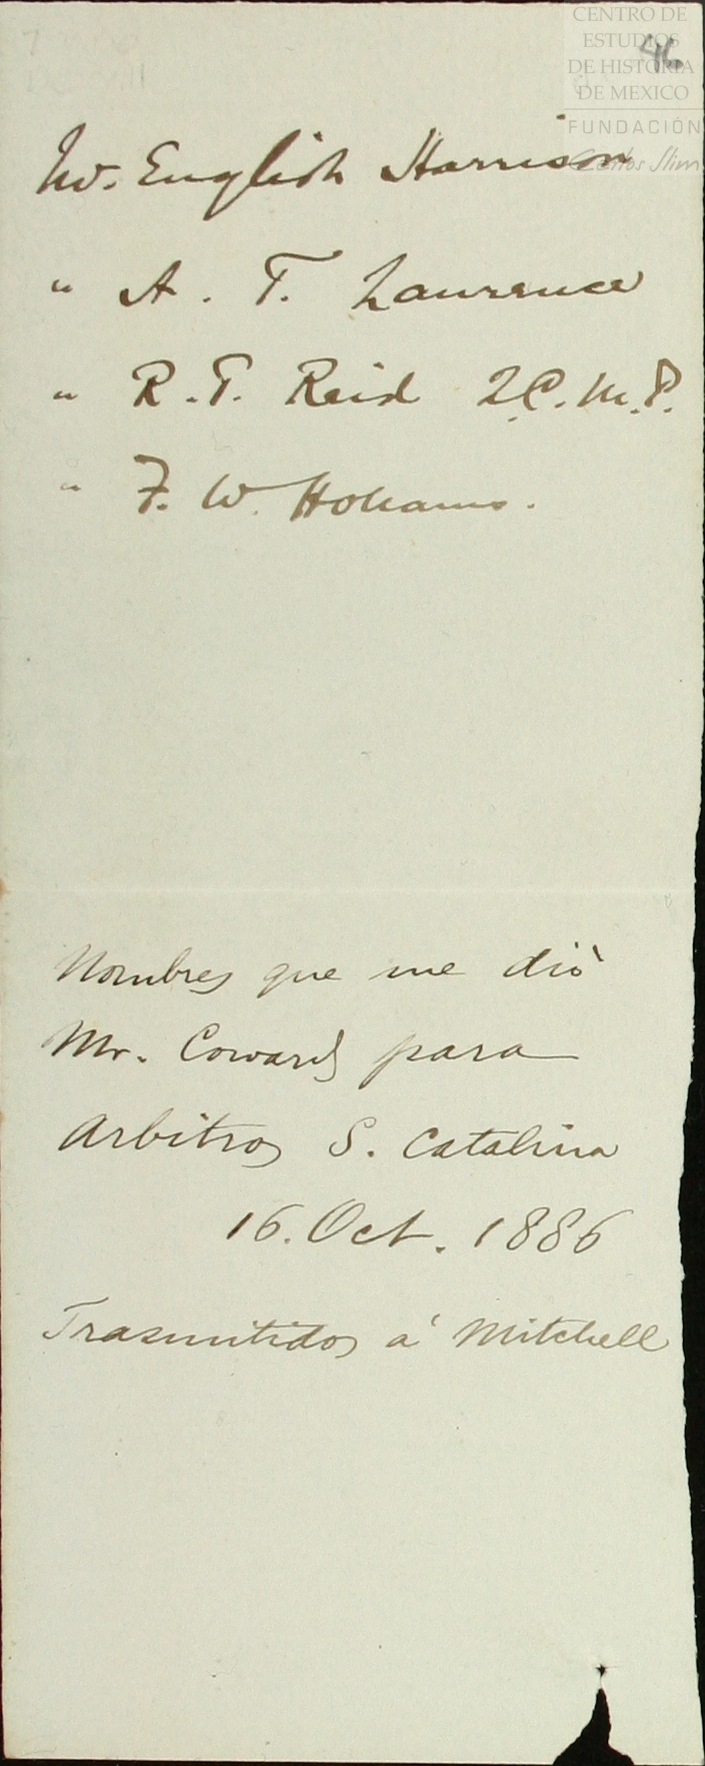 CENTRO DE
ESTUDIOS
DE HISTORIA
DE MEXICO
FUNDACIÓN
Carlos Slim
46
English Harrison
" A. T. Lawrence
" R. T. Reid Q.C. M.P.
" F. W. Hollams.
Nombres que me diò
Mr. Coward para
Arbitros S. Catalina
16. Oct. 1886
Trasmitidos á Mitchell